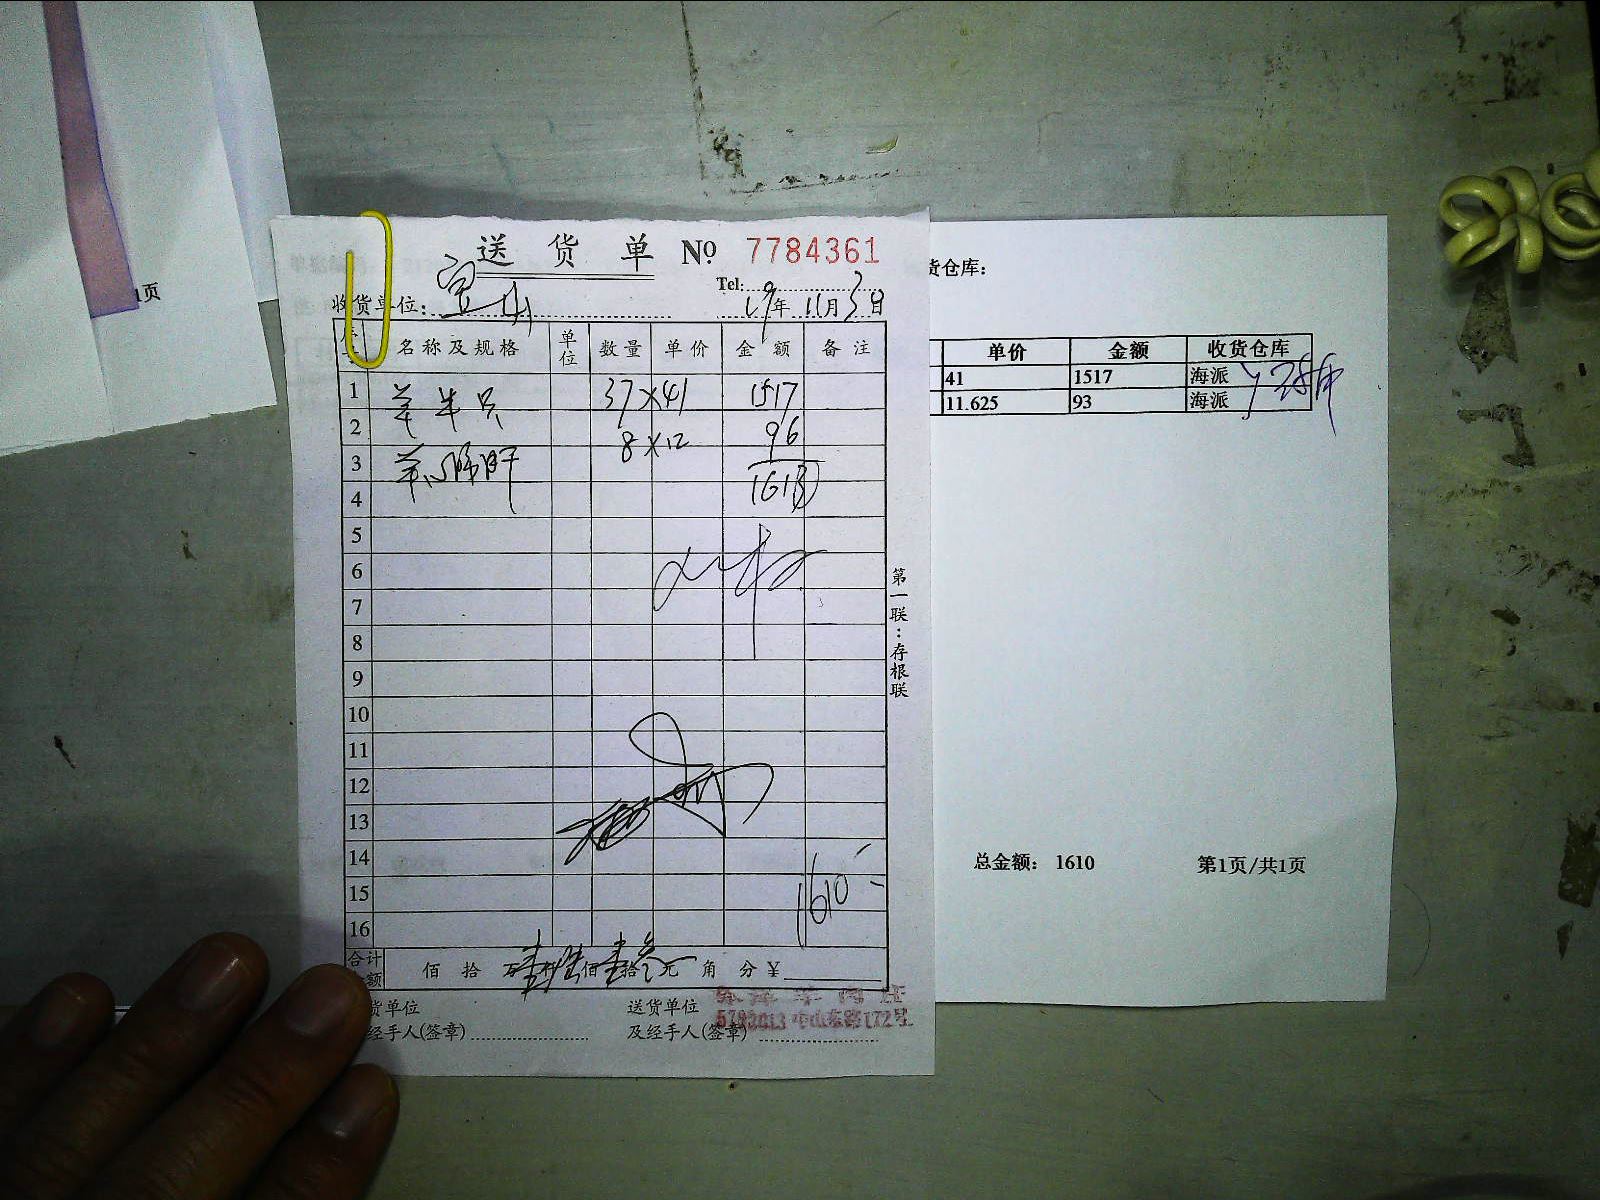 1页
送货单 No 7784361
Tel:
收货单位: 宝山 19年11月3日
名称及规格 单位 数量 单价 金额 备注
1 羊半只 37×41 1517
2 8×12 96
3 羊心肺肝
4 1613
5
6
7
8
9
10
11
12
13
14
15 1610
16
合计 额 佰拾万壹仟陆佰壹拾叁元角分¥
货单位 送货单位
经手人(签章) 及经手人(签章)
中山东路172号
第一联:存根联
货仓库:
单价 金额 收货仓库
41 1517 海派
11.625 93 海派
总金额: 1610 第1页/共1页